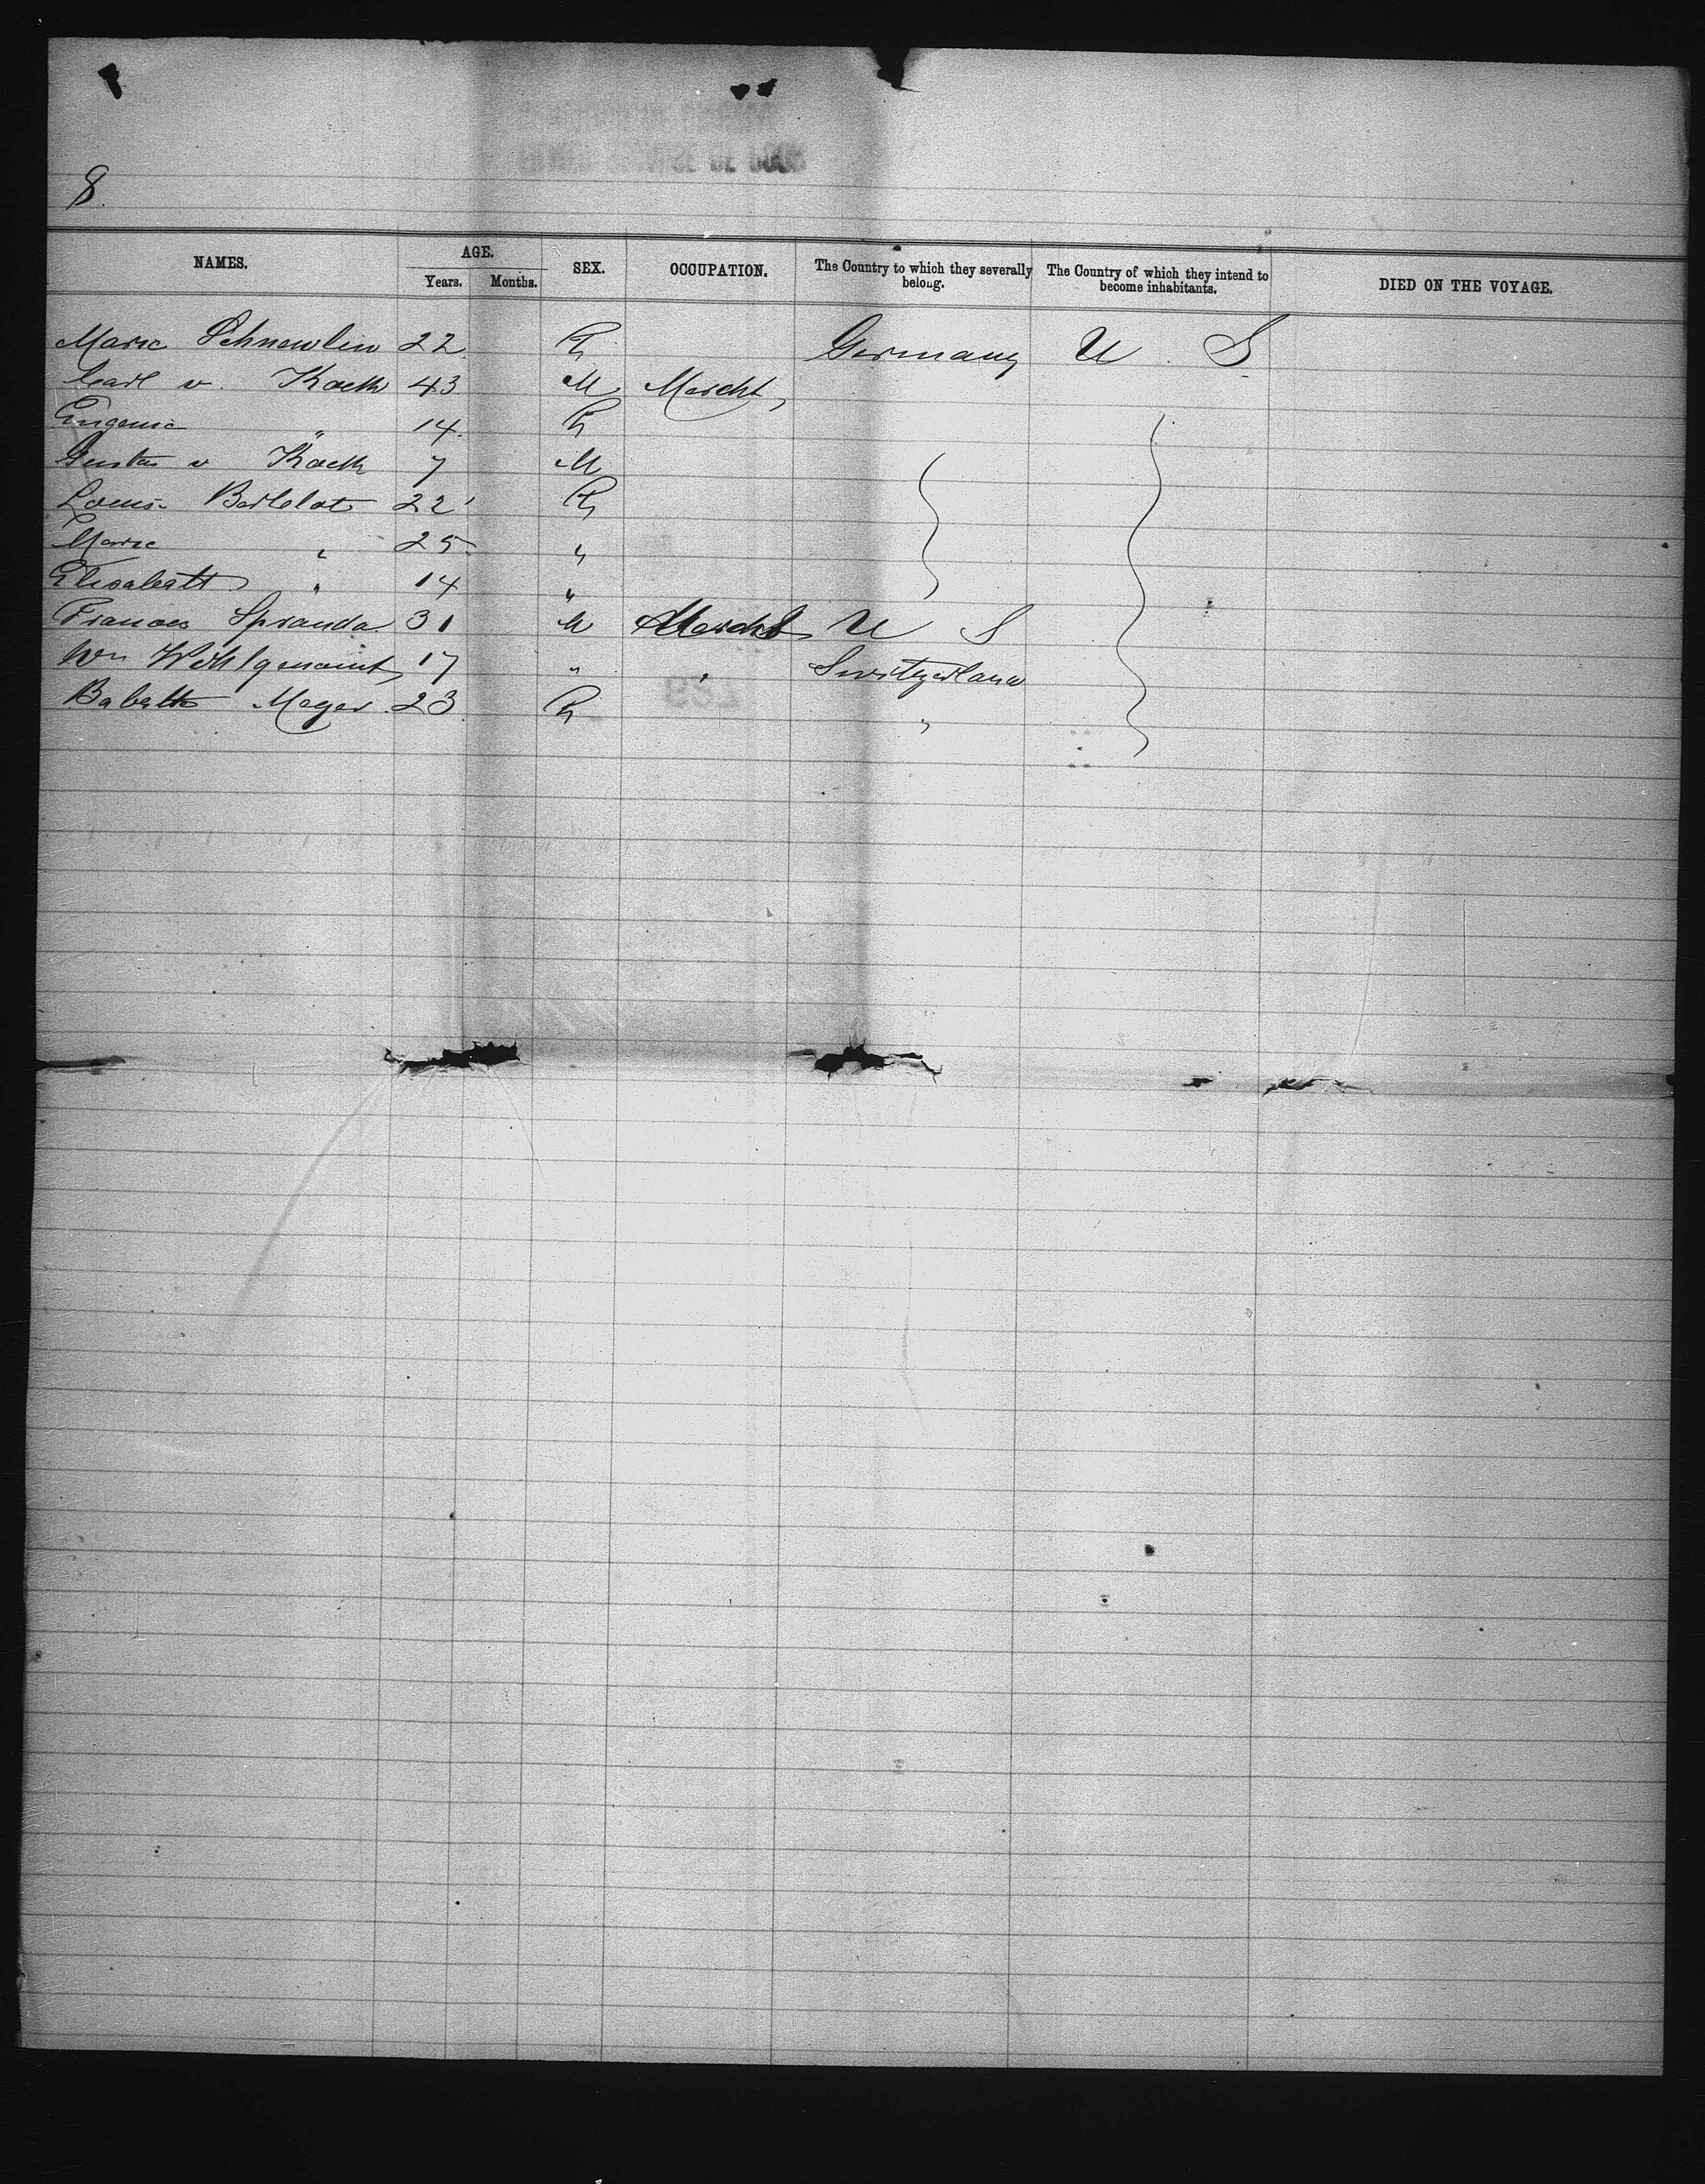 8.
NAMES. AGE. SEX. OCCUPATION. The Country to which they severally belong. The Country of which they intend to become inhabitants. DIED ON THE VOYAGE.
Years. Months.
Marie Schnewlin 22 F Germany U. S
Carl v. Koeth 43 M Mercht,
Eugenie " 14. F
Gustav v Koeth 7 M
Louis. Berthlot 22 F
Marie " 25 "
Elisabeth " 14 "
Frances Spranda 31 M Mercht U S
Wm Wohlgenannt 17 " " Switzerland
Babette Mager 23 F "